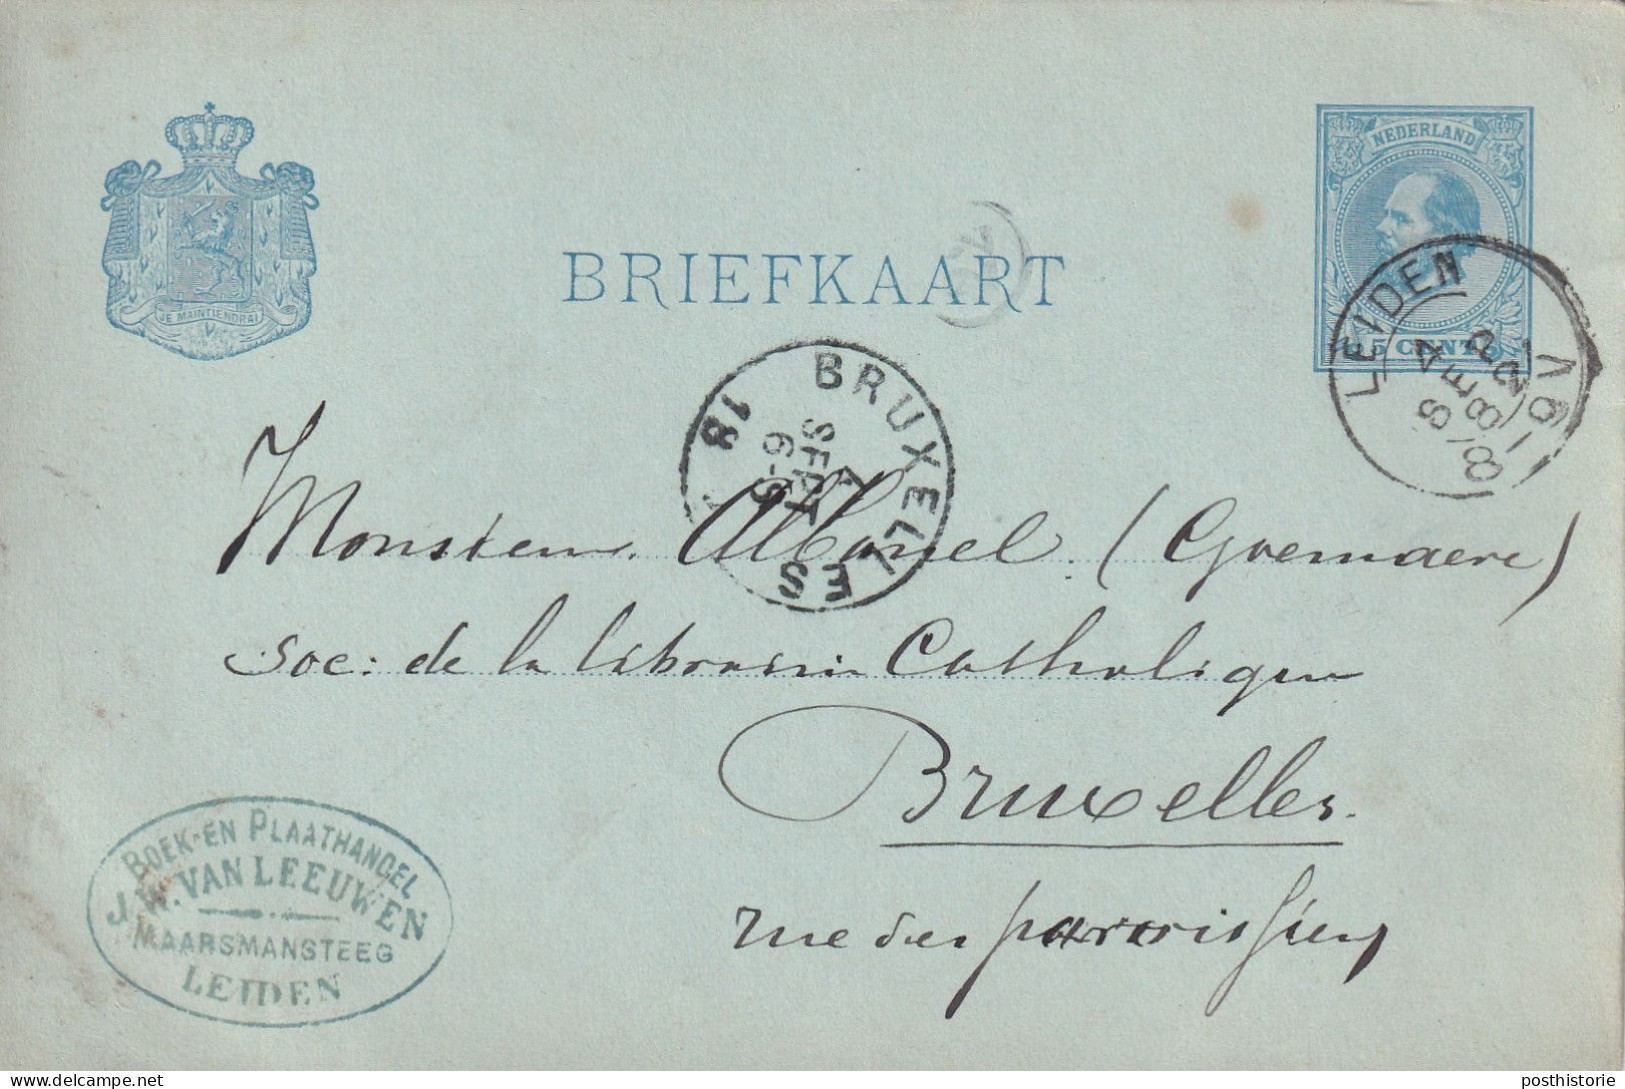 NEDERLAND
JE MAINTIENDRAI
BRIEFKAART
5 CENT
LEIDEN
4 SEP
BRUXELLES
4
SEPT
6-S
18
Monsieur Albanel (Goemaere)
Soc: de la librairie Catholique
Bruxelles.
rue des paroissiens
BOEK-EN PLAATHANDEL
J.W. VAN LEEUWEN
MAARSMANSTEEG
LEIDEN
posthistorie